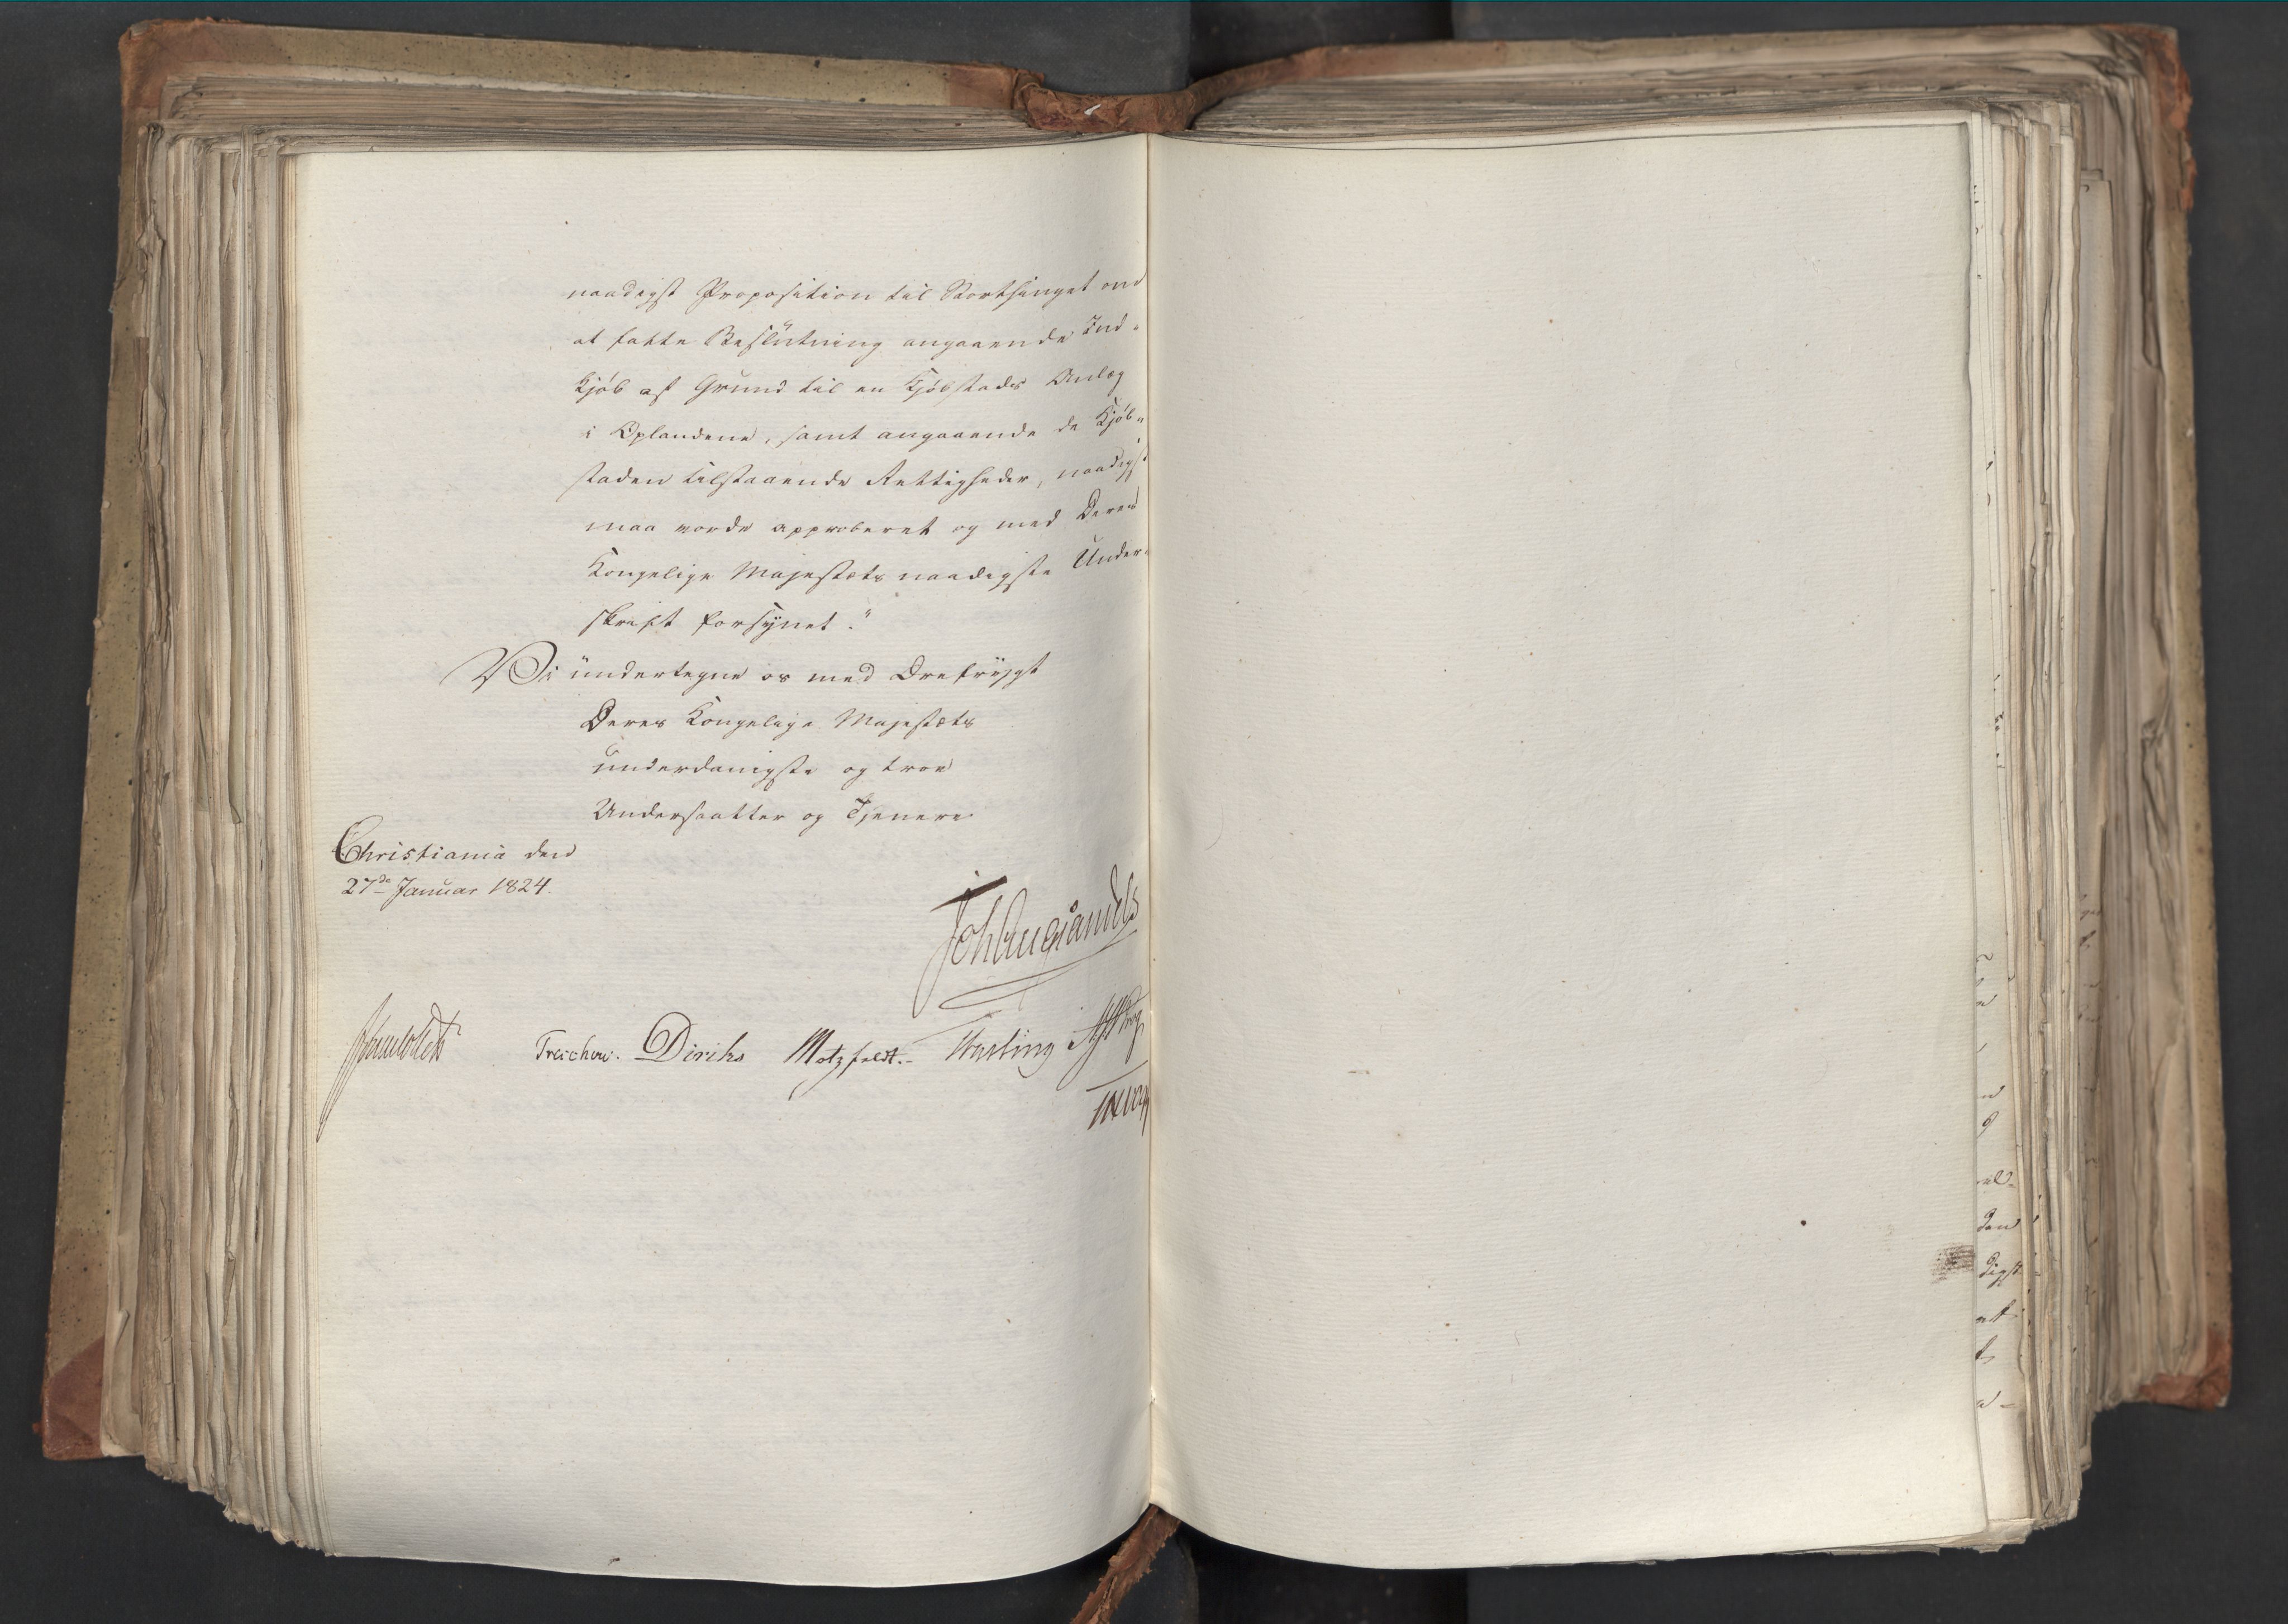 naadigst Proposition til Storthinget om
at fatte Beslutning angaaende Ind-
kjøb af Grund til en Kjøbstads Anlæg
i Oplandene, samt angaaende de Kjøb-
staden tilstaaende Rettigheder, naadigst
maa vorde approberet og med Deres
Kongelige Majestæts naadigste Under-
skrift forsynet."
Vi undertegne os med Ærefrygt
Deres Kongelige Majestæts
underdanigste og troe
Undersaatter og Tjenere
Christiania den
27de Januar 1824.
Joh Aug Sandels
Treschow. Diriks Motzfeldt.
den
digst